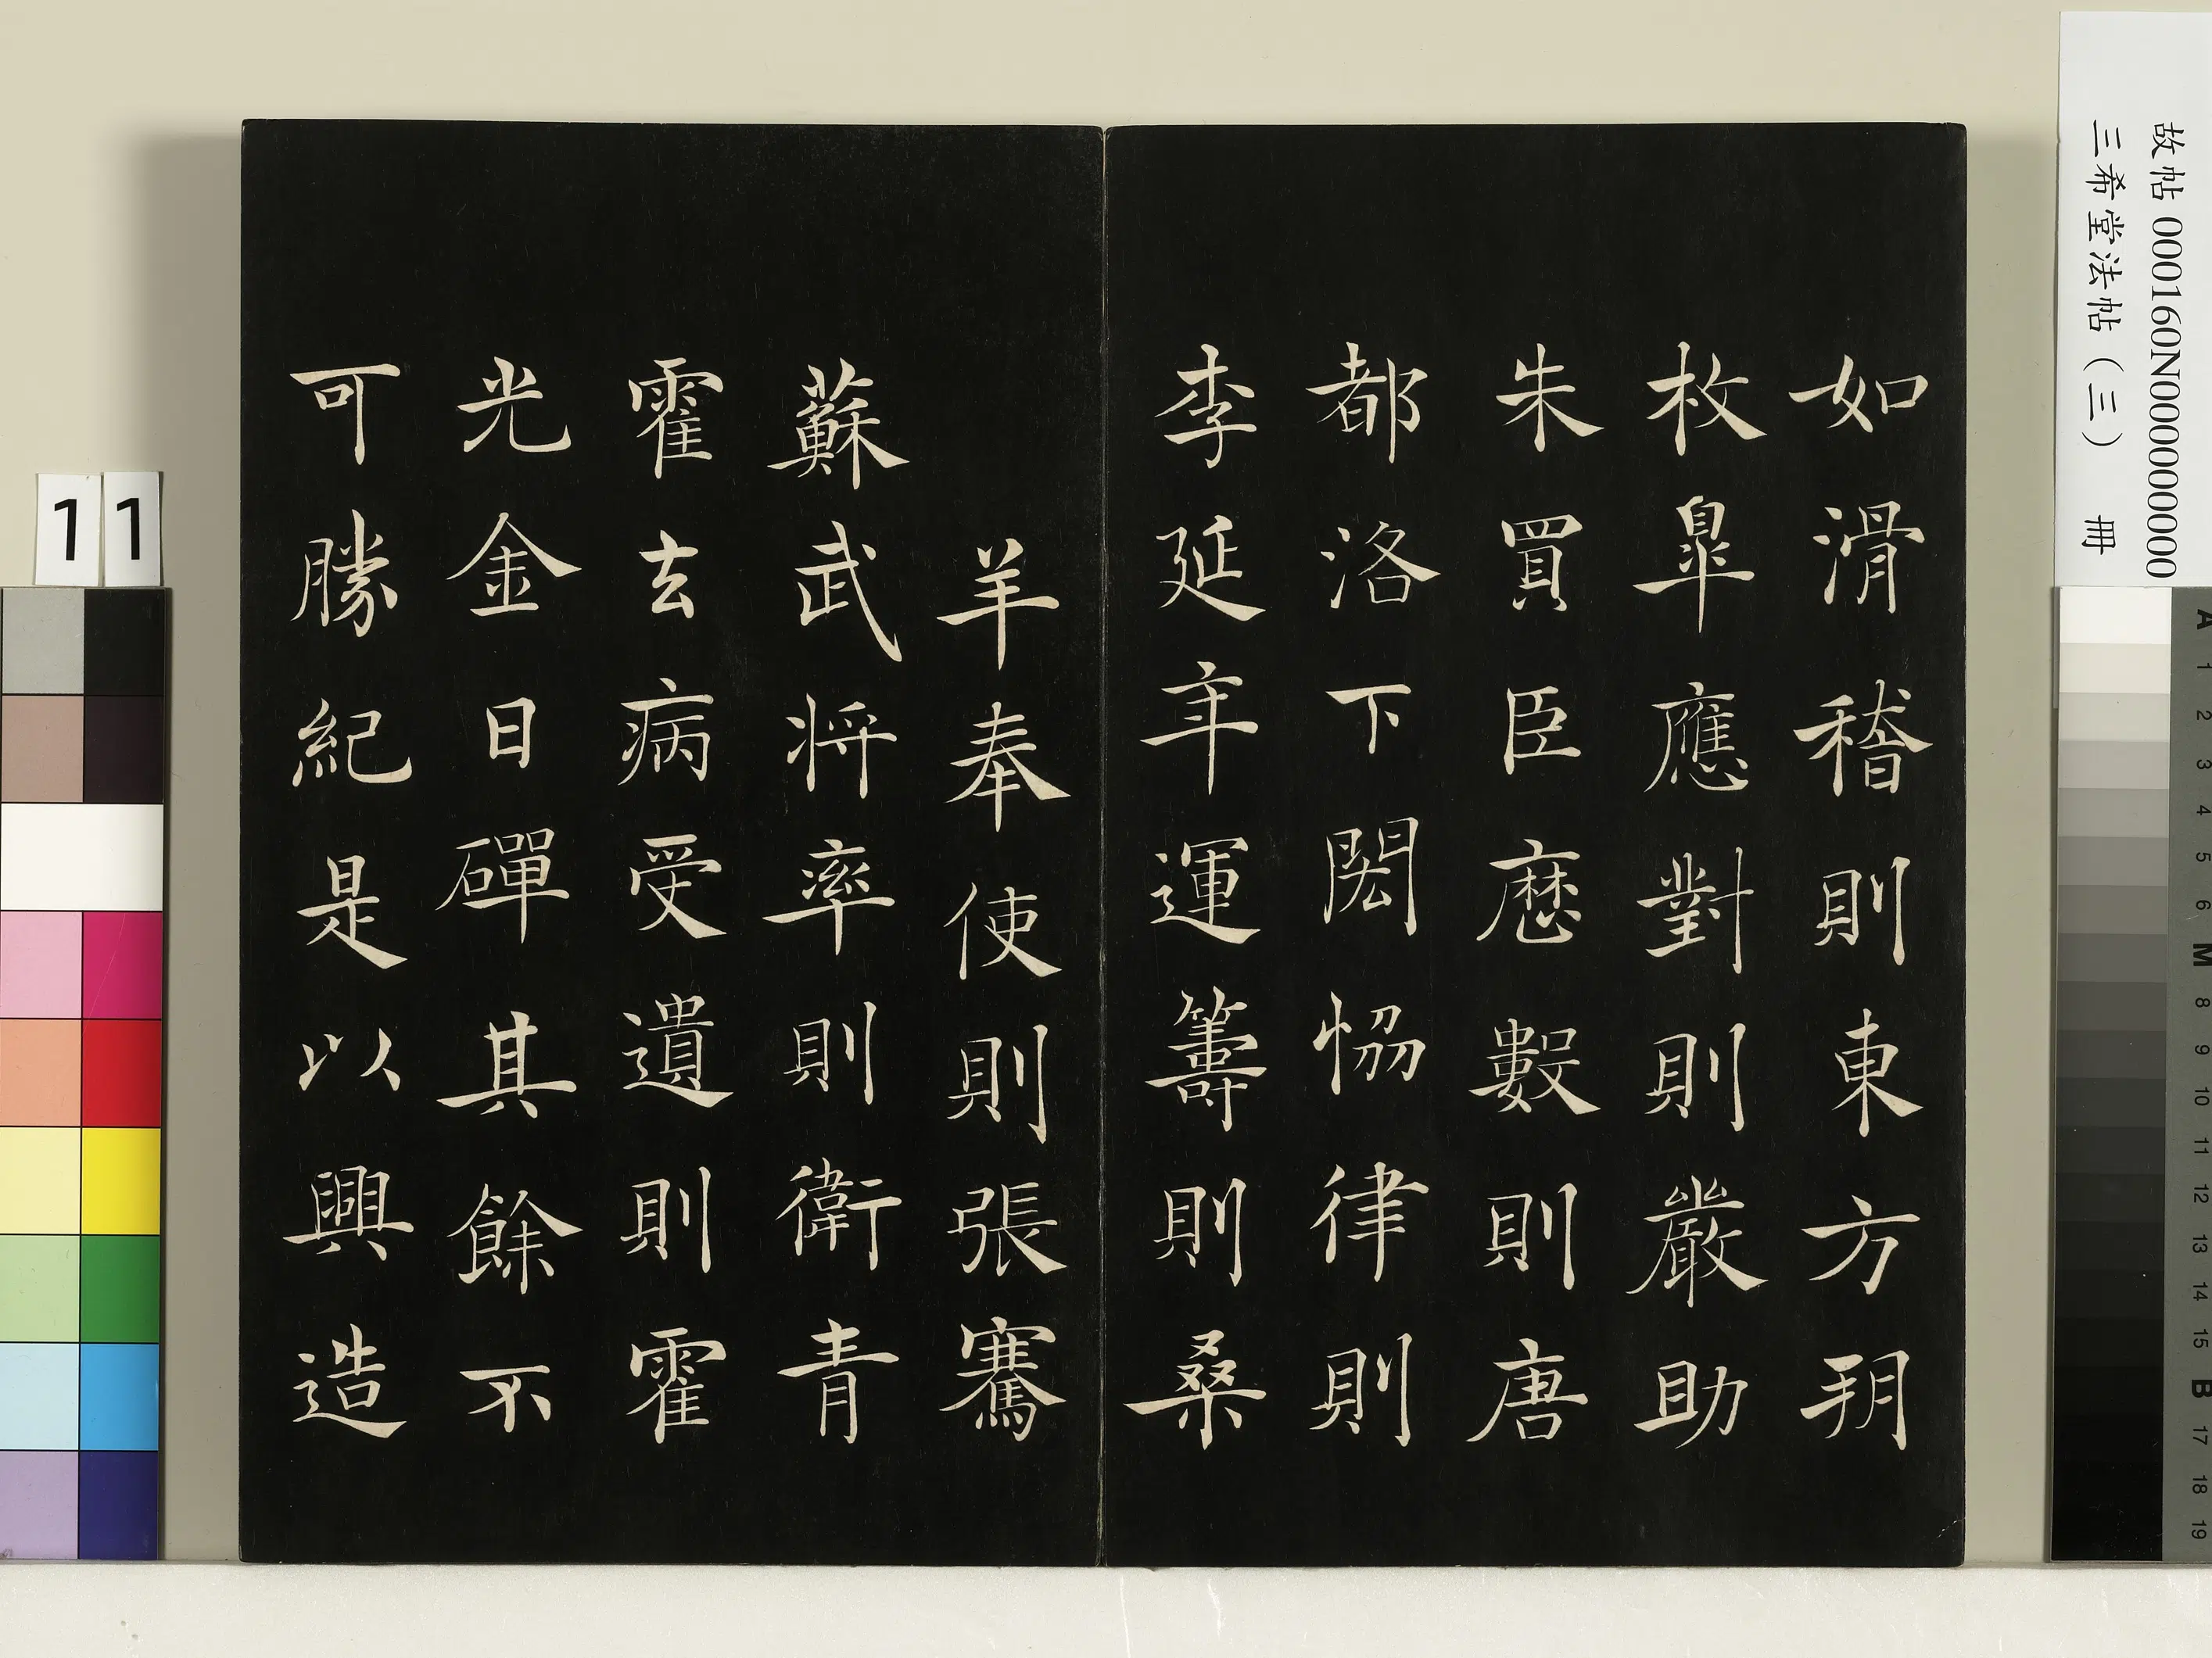 如滑稽則東方朔
枚皐應對則嚴助
朱買臣厯數則唐
都洛下閎恊律則
李延年運籌則桑
羊奉使則張騫
蘇武將率則衛青
霍去病受遺則霍
光金日磾其餘不
可勝紀是以興造
故帖 000160N000000000
三希堂法帖(三) 冊
11
A 1 2 3 4 5 6 M 8 9 10 11 12 13 14 15 B 17 18 19